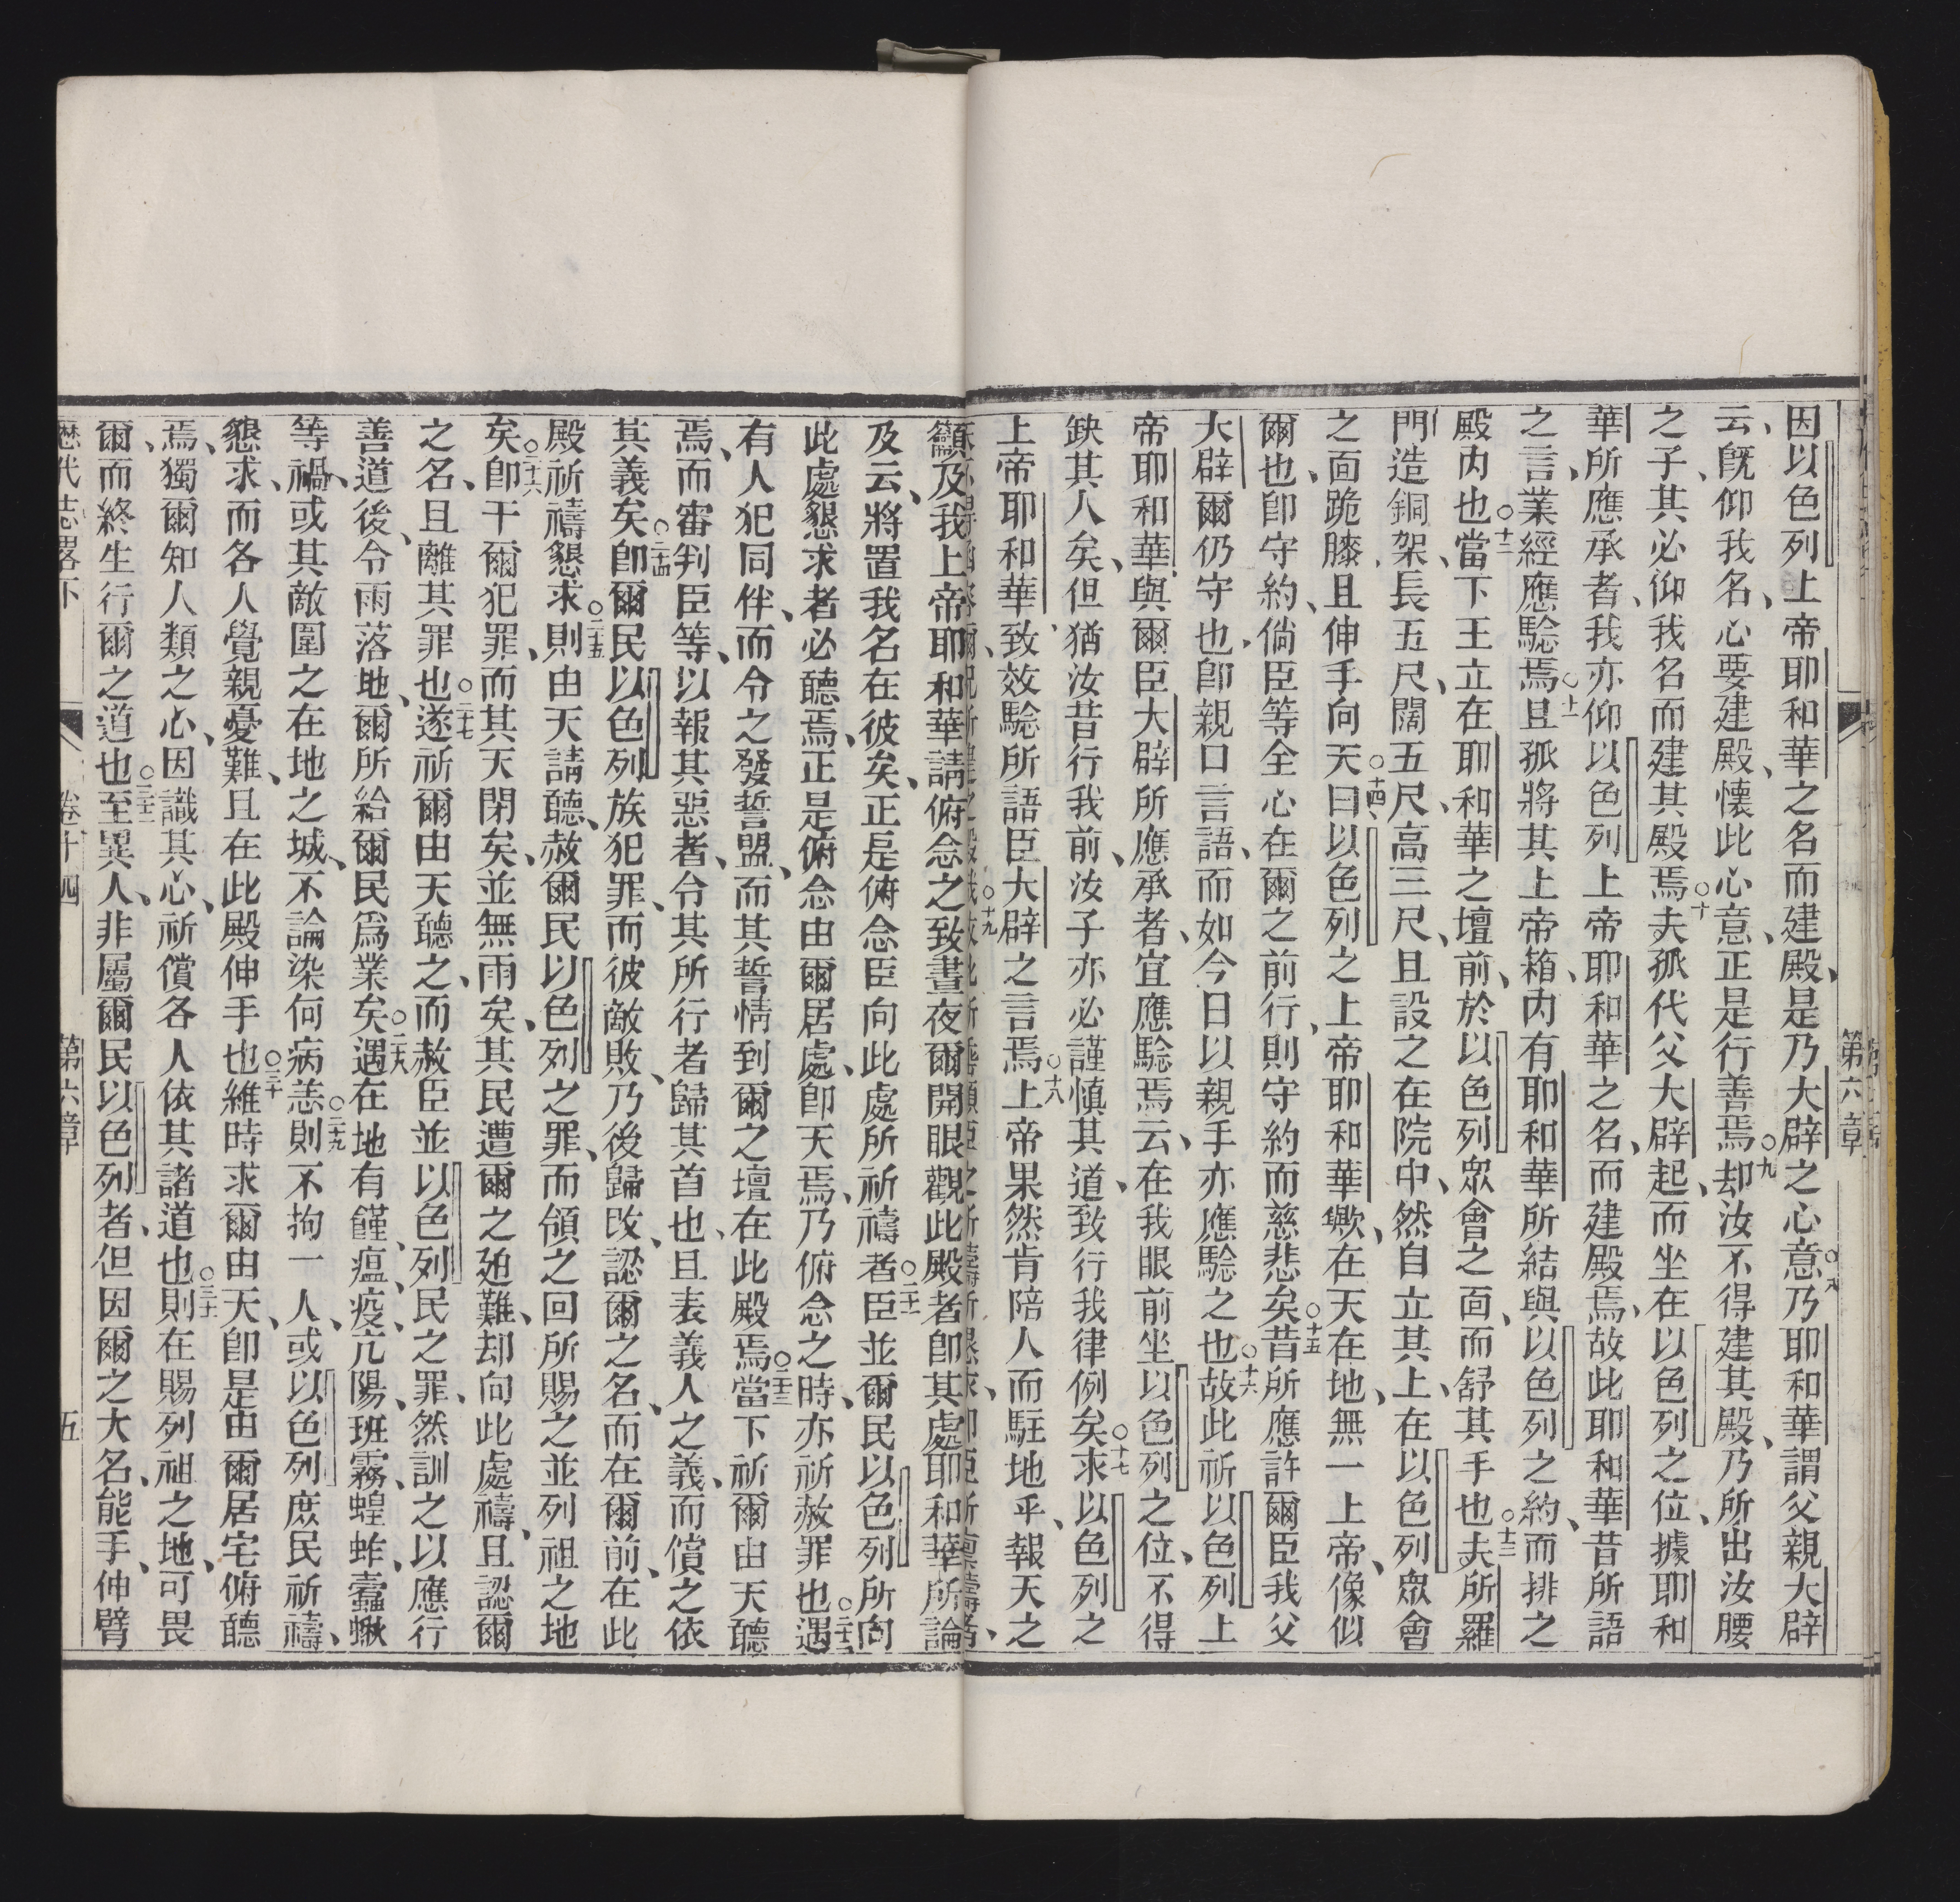 第六章
因以色列上帝耶和華之名而建殿、是乃大辟之心意○八乃耶和華謂父親大辟
云、既仰我名、心要建殿、懷此心意、正是行善焉○九却汝不得建其殿、乃所出汝腰
之子、其必仰我名而建其殿焉○十夫孤代父大辟起、而坐在以色列之位、據耶和
華所應承者、我亦仰以色列上帝耶和華之名、而建殿焉、故此耶和華昔所語
之言、業經應騐焉○十一且孤將其上帝箱、內有耶和華所結與以色列之約、而排之
殿內也○十二當下王立在耶和華之壇前、於以色列眾會之面、而舒其手也○十三夫所羅
門造銅架、長五尺、闊五尺、高三尺、且設之在院中、然自立其上、在以色列眾會
之面跪膝、且伸手向天○十四曰、以色列之上帝耶和華歟、在天在地、無一上帝、像似
爾也、卽守約、倘臣等全心在爾之前行、則守約而慈悲矣○十五昔所應許爾臣我父
大辟、爾仍守也、卽親口言語、而如今日以親手亦應騐之也○十六故此祈以色列上
帝耶和華、與爾臣大辟所應承者、宜應騐焉、云、在我眼前坐以色列之位、不得
缺其人矣、但猶汝昔行我前、汝子亦必謹慎其道、致行我律例矣○十七求以色列之
上帝耶和華、致效騐所語臣大辟之言焉○十八上帝果然肯陪人而駐地乎、報天之
籲及我上帝耶和華、請俯念之、致晝夜爾開眼觀此殿者、卽其處耶和華所論
及云、將置我名在彼矣、正是俯念臣向此處所祈禱者○二十一臣並爾民以色列所向
此處懇求者、必聽焉、正是俯念由爾居處、卽天焉、乃俯念之時、亦祈赦罪也○二十二遇
有人犯同伴、而令之發誓盟、而其誓情到爾之壇、在此殿焉○二十三當下祈爾由天聽
焉、而審判臣等、以報其惡者、令其所行者歸其首也、且表義人之義、而償之依
其義矣○二十四卽爾民以色列族犯罪、而彼敵敗、乃後歸改、認爾之名、而在爾前、在此
殿祈禱懇求○二十五則由天請聽、赦爾民以色列之罪、而領之回所賜之並列祖之地
矣○二十六卽干爾犯罪、而其天閉矣、並無雨矣、其民遭爾之廹難、却向此處禱、且認爾
之名、且離其罪也○二十七遂祈爾由天聽之、而赦臣並以色列民之罪、然訓之以應行
善道後、令雨落地、爾所給爾民爲業矣○二十八遇在地有饉、瘟、疫、亢陽、班霧、蝗蚱、蠧蝋
等禍、或其敵圍之在地之城、不論染何病恙○二十九則不拘一人、或以色列庶民祈禱、
懇求、而各人覺親憂難、且在此殿伸手也○三十維時求爾由天、卽是由爾居宅俯聽
焉、獨爾知人類之心、因識其心、祈償各人依其諸道也○三十一則在賜列祖之地、可畏
爾、而終生行爾之道也○三十二至異人、非屬爾民以色列者、但因爾之大名、能手、伸臂
歷代志畧下 卷十四 第六章 五